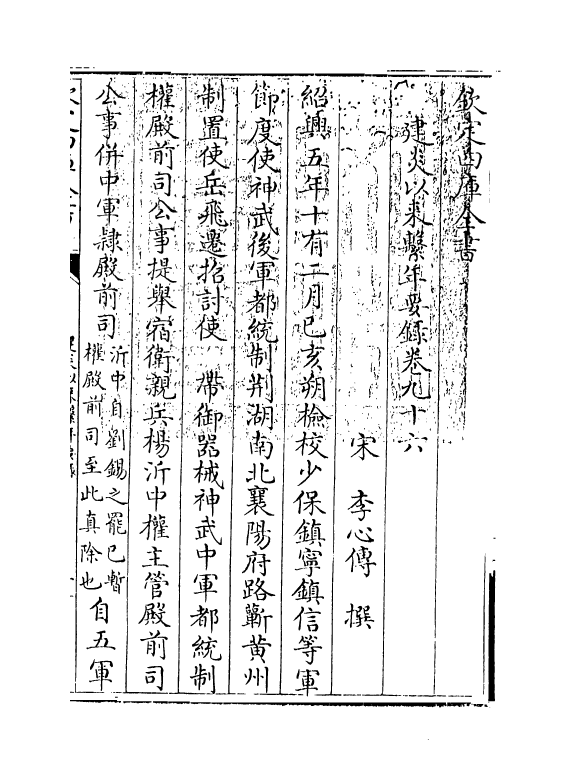 欽定四庫全書
建炎以来繫年要錄卷九十六
宋 李心傳 撰
紹興五年十有二月己亥朔檢校少保鎮寧鎮信等軍
節度使神武後軍都統制荆湖南北襄陽府路蘄黄州
制置使岳飛遷招討使 帶御器械神武中軍都統制
權殿前司公事提舉宿衛親兵楊沂中權主管殿前司
公事併中軍隸殿前司
沂中自劉錫之罷已暫
權殿前司至此真除也
自五軍